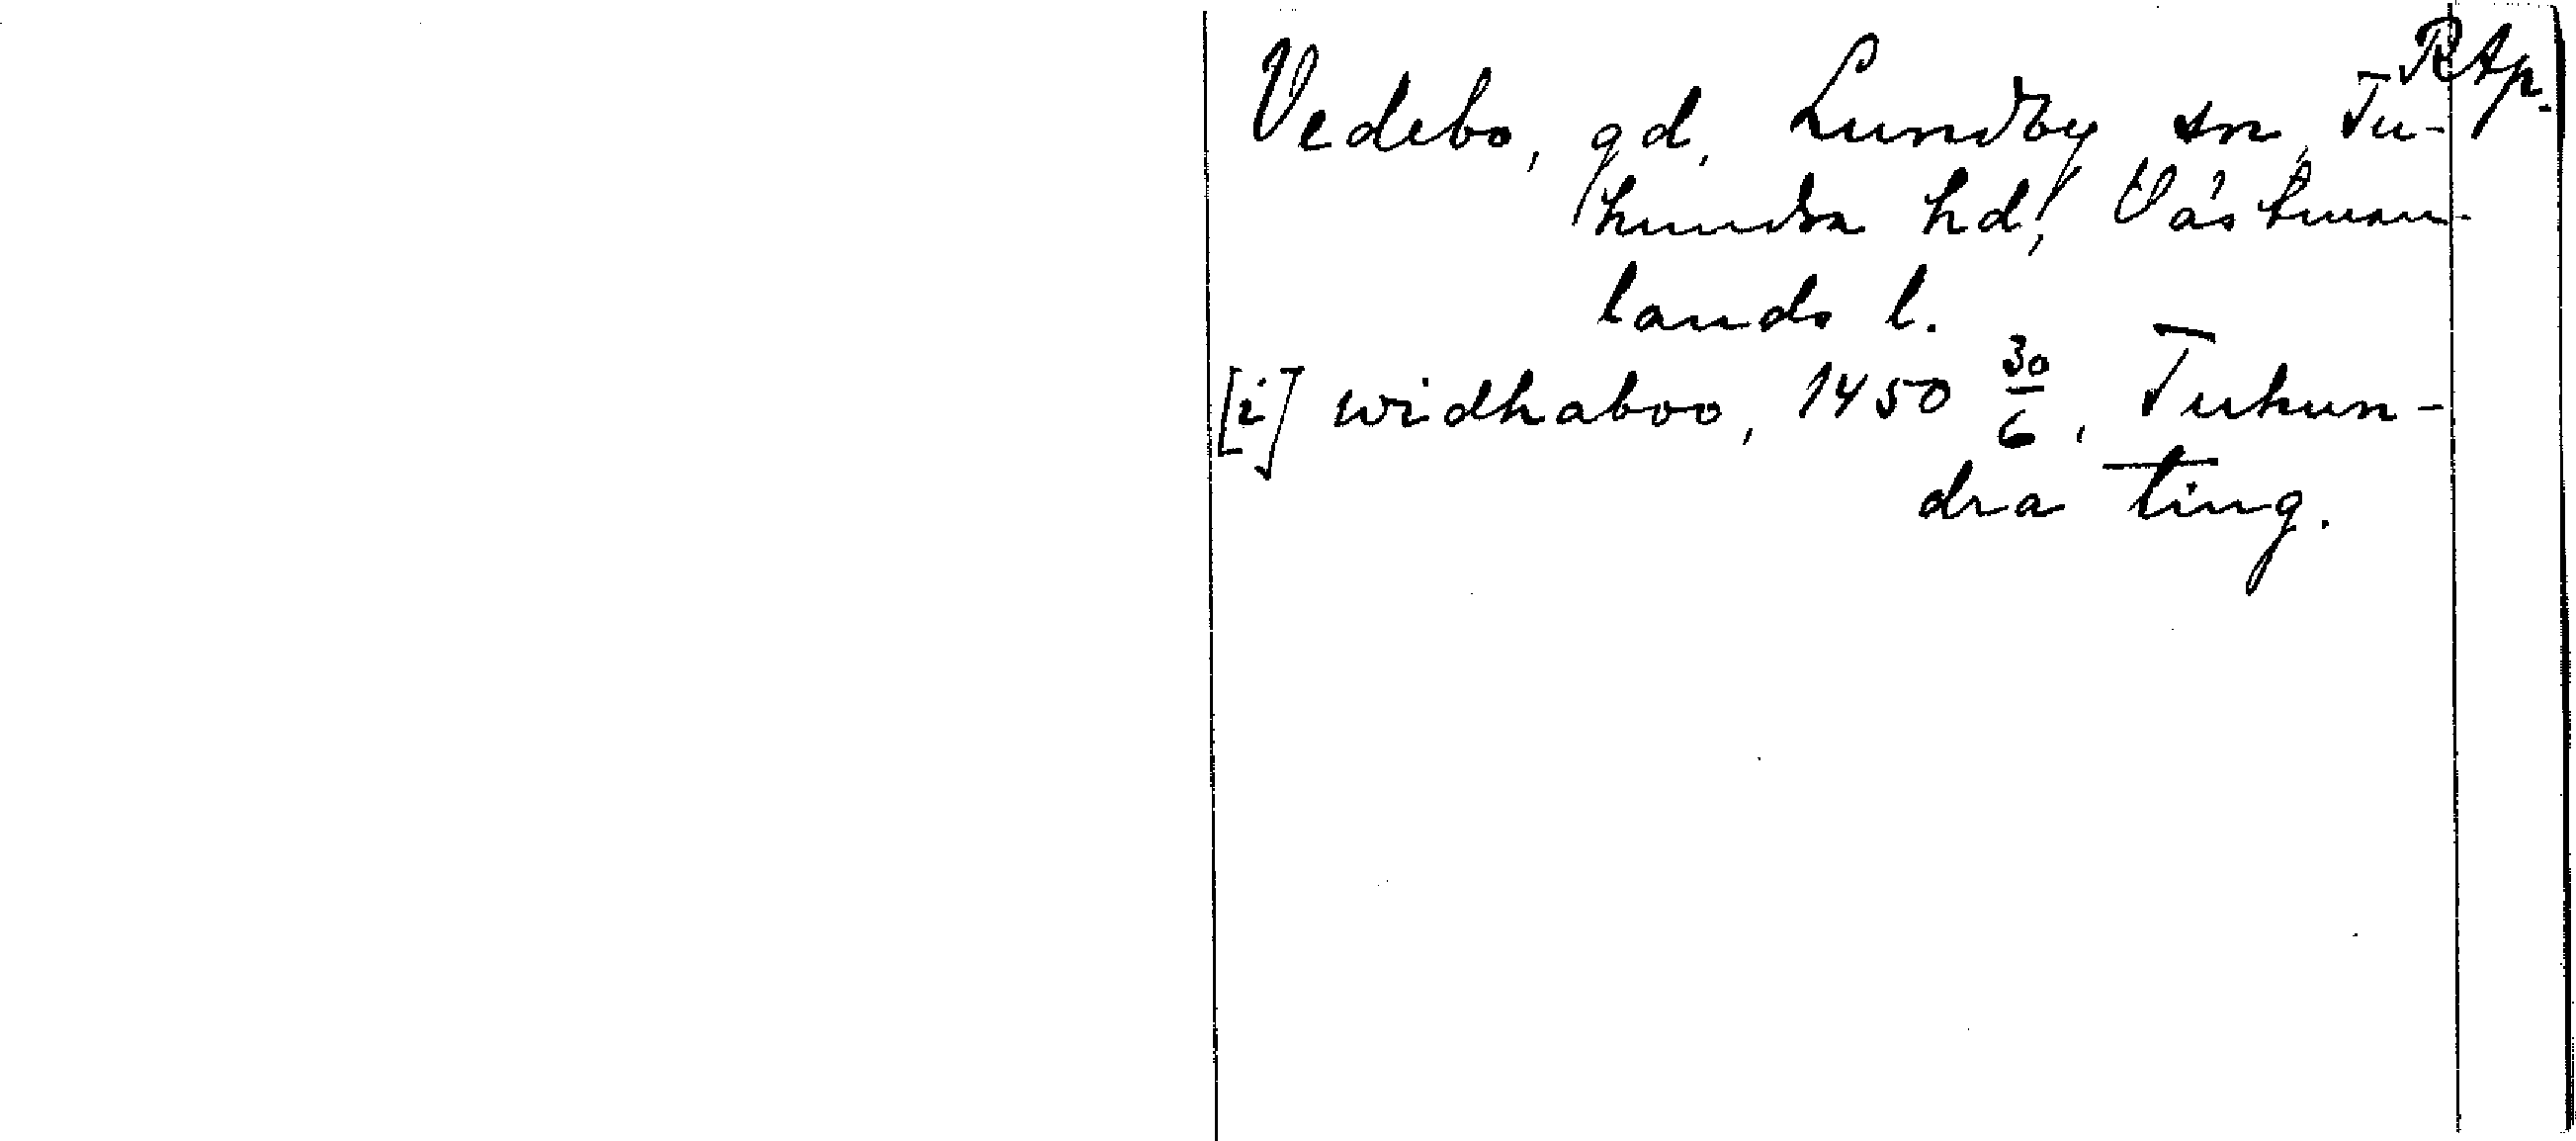 RAp.
Vedebo, gd, Lundby sn, Tu-
hundra hd, Västman-
lands l.
[i] widhaboo, 1450 30/6, Tuhun-
dra ting.